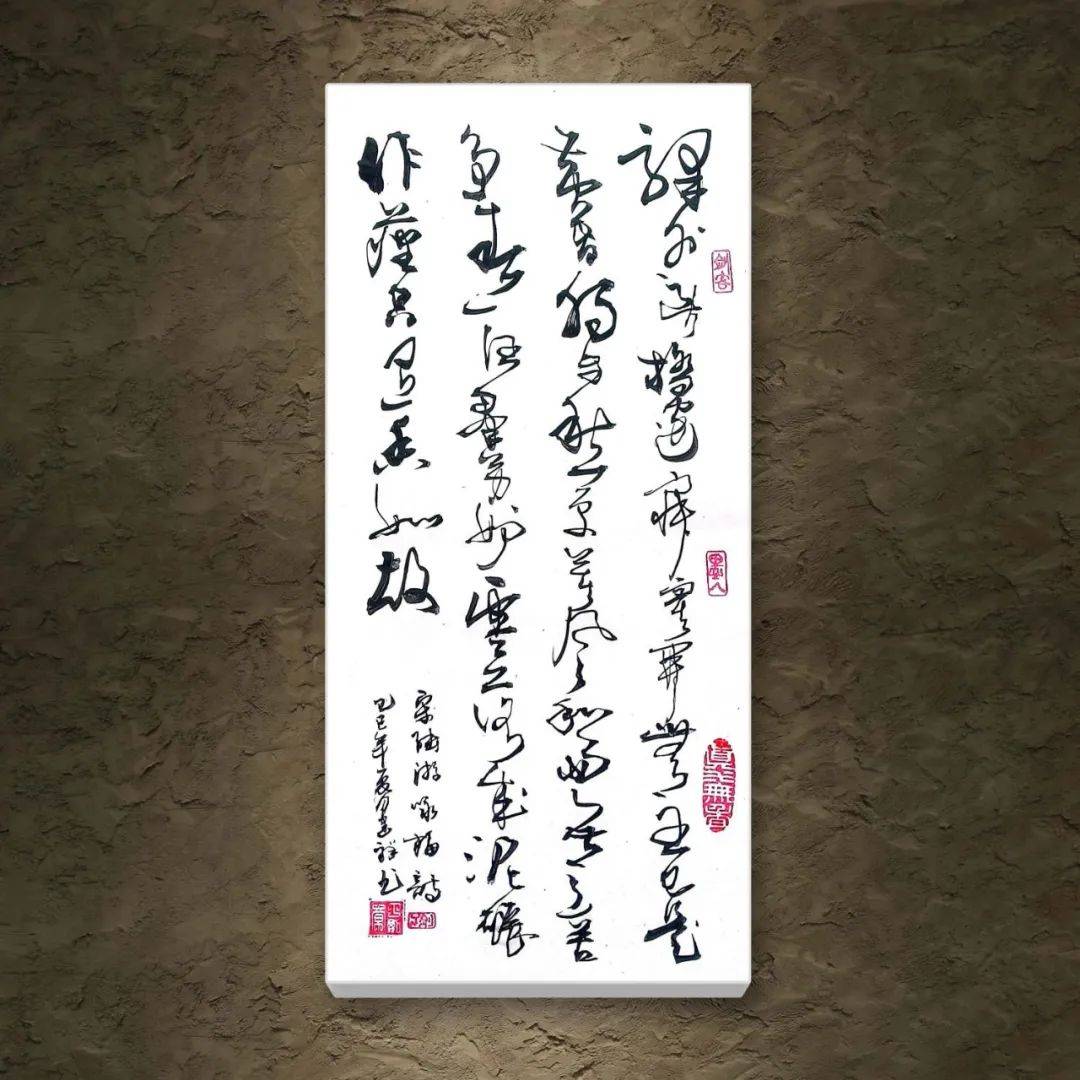 驛外斷橋邊寂寞開無主已是
黄昏獨自愁更著風和雨無意苦
爭春一任羣芳妒零落成泥碾
作塵只有香如故
宋陆游咏梅
乙巳年夏月祥书
劍客
墨人